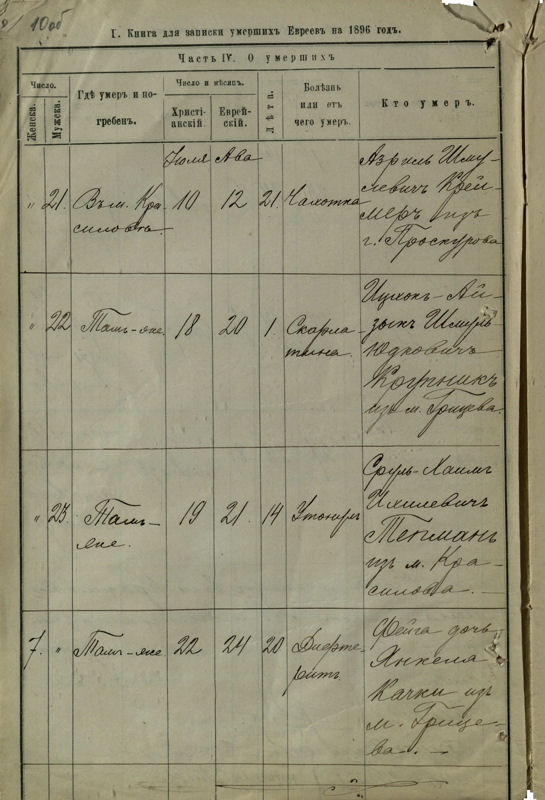 10 об
I. Книга для записки умершихъ Евреевъ на 1896 годъ.
Часть IV. О умершихъ
Число.
Женска.
Мужска.
Гдѣ умеръ и по-
гребенъ.
Число и мѣсяцъ.
Христі-
анскій.
Еврей-
скій.
Лѣта.
Болѣзнь
или отъ
чего умеръ.
Кто умеръ.
Іюля Ава
" 21. Въ м. Кра-
силовѣ. 10 12 21. Чахотка
Азриль Шму-
левичъ Крей-
меръ изъ
г. Проскурова
" 22 Тамъ-же. 18 20 1. Скарла-
тина.
Ицхокъ-Ай-
зыкъ Шмуль
Юдковичъ
Крупникъ
изъ м. Грицева.
" 23. Тамъ-
же. 19 21. 14 Утонулъ
Сруль-Хаимъ
Ихилевичъ
Тепманъ
изъ м. Кра-
силова.
7. " Тамъ-же 22 24 20 Дифте-
ритъ.
Фейга дочь
Янкела
Качки изъ
м. Грице-
ва.